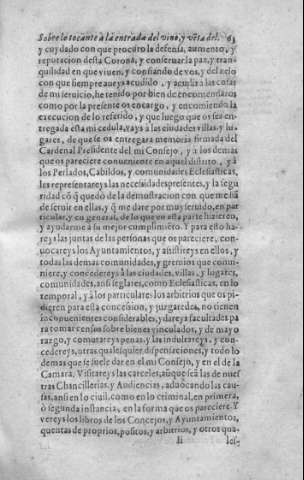 Sobre lo tocante à la entrada del vino, y vẽta del. 63
y cuydado con que procuro la defensa, aumento, y
reputacion desta Corona, y conseruarla paz, y tran-
quilidad en que viuen, y confiando de vos, y del zelo
con que siempre aueys acudido, y acudis à las cosas
de mi seruicio, he tenido por bien de encomendaros
como por la presente os encargo, y encomiendo la
execucion de lo referido, y que luego que os sea en-
tregada esta mi cedula, vays a las ciudades villas, y lu-
gares, de que se os entregarà memoria firmada del
Cardenal Presidente del mi Consejo, y a los demas
que os pareciere conueniente en aquel distrito, y à
los Perlados, Cabildos, y comunidades Eclesiasticas,
les representareys las necesidades presentes, y la segu
ridad cõ q̃ quedo de la demostracion con que me hã
de seruir en ellas, y q̃ me dare por muy seruido, en par
ticular, y en general, de lo que en esta parte hizieren,
y ayudarme à su mejor cumplimiẽto. Y para esto ha-
reys las juntas de las personas que os pareciere, con-
uocareys los Ayuntamientos, y assistireys en ellos, y
todas las demas comunidades, y gremios que conui-
niere, y concedereys à las ciudades, villas, y lugares,
comunidades, ansi seglares, como Eclesiasticas, en lo
temporal, y à los particulares los arbitrios que os pi-
dieren para esta concession, y juzgaredes, no tienen
inconuenientes considerables, y dareys facultades pa
ra tomar censos sobre bienes vinculados, y de mayo
razgo, y comutareys penas, y las indultareys, y con-
cedereys, otras qualesquier dispensaciones, y todo lo
demas que se suele dar en el mi Consejo, y en el de la
Camara. Visitareys las carceles, aũque seã las de nues
tras Chancillerias, y Audiencias, aduocãdo las cau-
sas, ansi en lo ciuil, como en lo criminal, en primera,
ò segunda instancia, en la forma que os pareciere. Y
vereys los libros de los Concejos, y Ayuntamientos,
quentas de proprios, positos, y arbitrios, y otros qua-
Ii les-